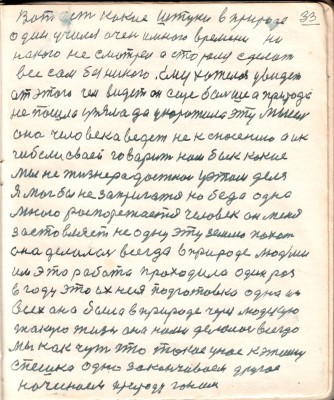 33
Вот есть какие штуки в природе
один учился очен много времени ни
накого не смотрел а сторону сделат
все сам без никого. Ему хотелося увидет
от этого чем видет он еще больше а природа
не пошла взяла да укоротила эту мысль
она человека ведет не к спасению а к
гибели своей говорить нам был какие
мы не жизнерадостное у этом деля
Я мог бы не запрягатя но беда одна
много распорежается человек он меня
заставляет не одну эту землю пахат
она делался всегда в природе людми
им эта работа проходила один раз
в году это их вся подготовка одна на
всех она была в природе через людскую
такую жизнь она нами делалося всегда
мы как чут это такое иное к этому
спешка одно заканчиваем другое
начинаем природу гоним